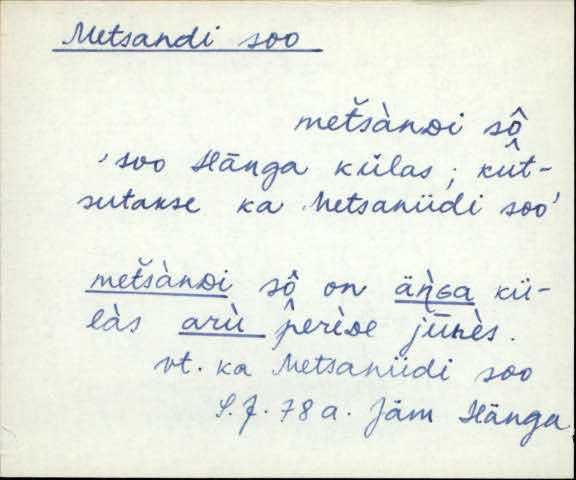 Metsandi soo
metšànᴅi sô
'soo Hänga külas; kût-
sutakse ka Metsaniidi soo'
metšànᴅi sô on äǹɢa kü-
làs arù perèᴅe jūnès.
vt. ka Metsaniidi soo
S.J. 78 a. Jäm Hänga